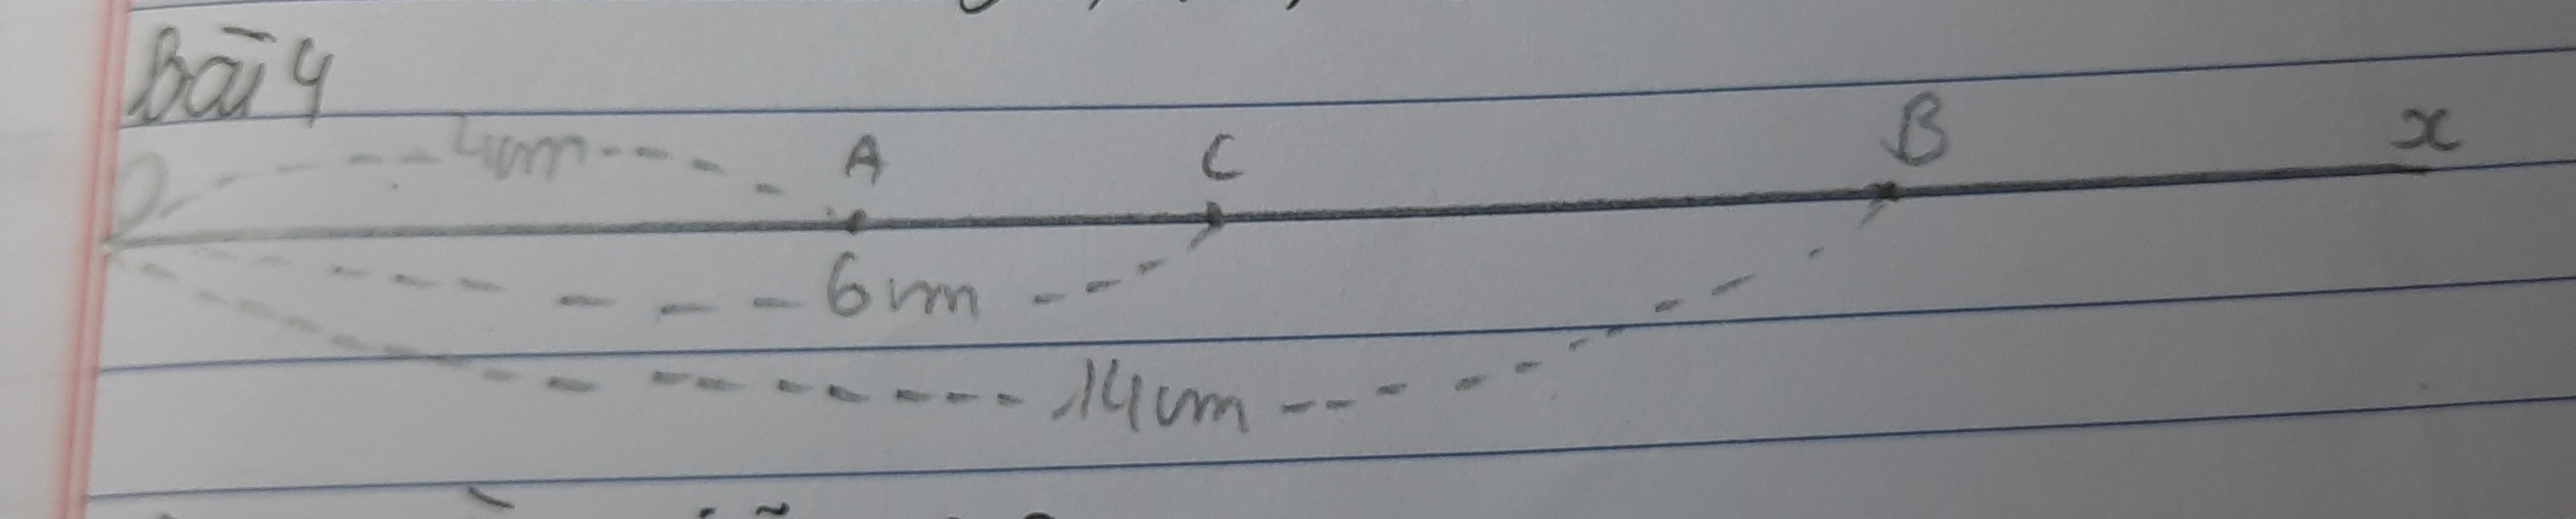 Bài 4
O
4cm
A
C
B
x
6cm
14cm